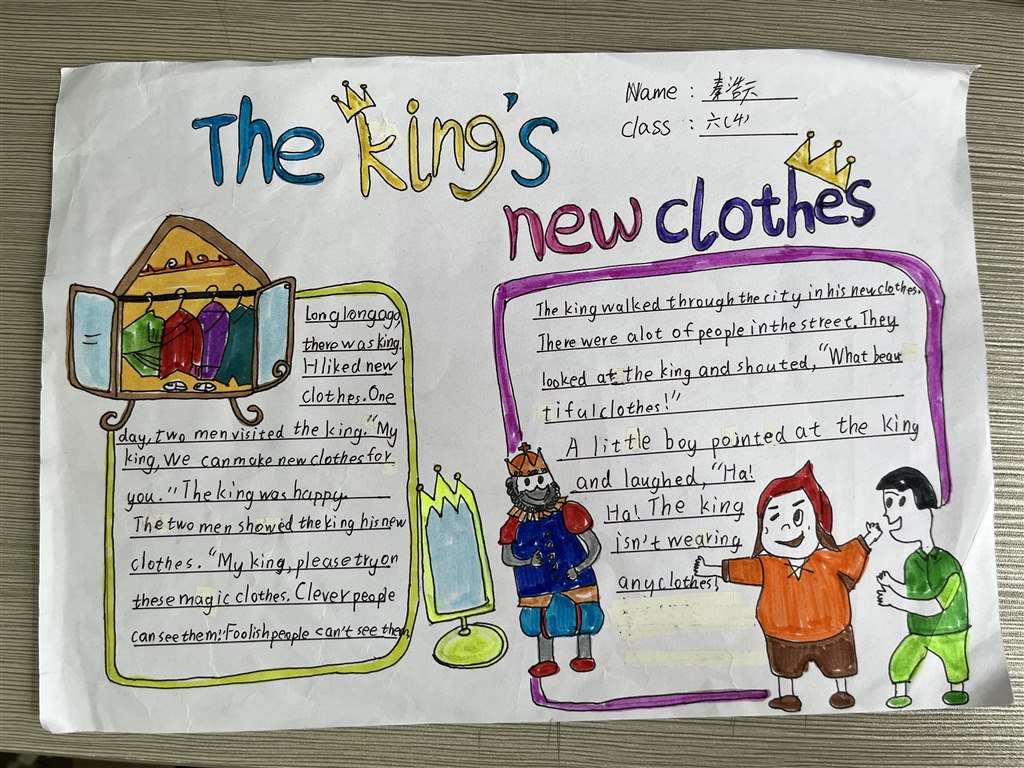 The king's
new clothes
Name : 秦浩天
class : 六(4)
Long long ago,
there was king.
H liked new
clothes. One
day, two men visited the king. "My
king, We can make new clothes for
you." The king was happy.
The two men showed the king his new
clothes. "My king, please try on
these magic clothes. Clever people
can see them." Foolish people can't see them
The king walked through the city in his new clothes.
There were a lot of people in the street. They
looked at the king and shouted, "What beau
tiful clothes!"
A little boy pointed at the king
and laughed, "Ha!
Ha! The king
isn't wearing
any clothes!